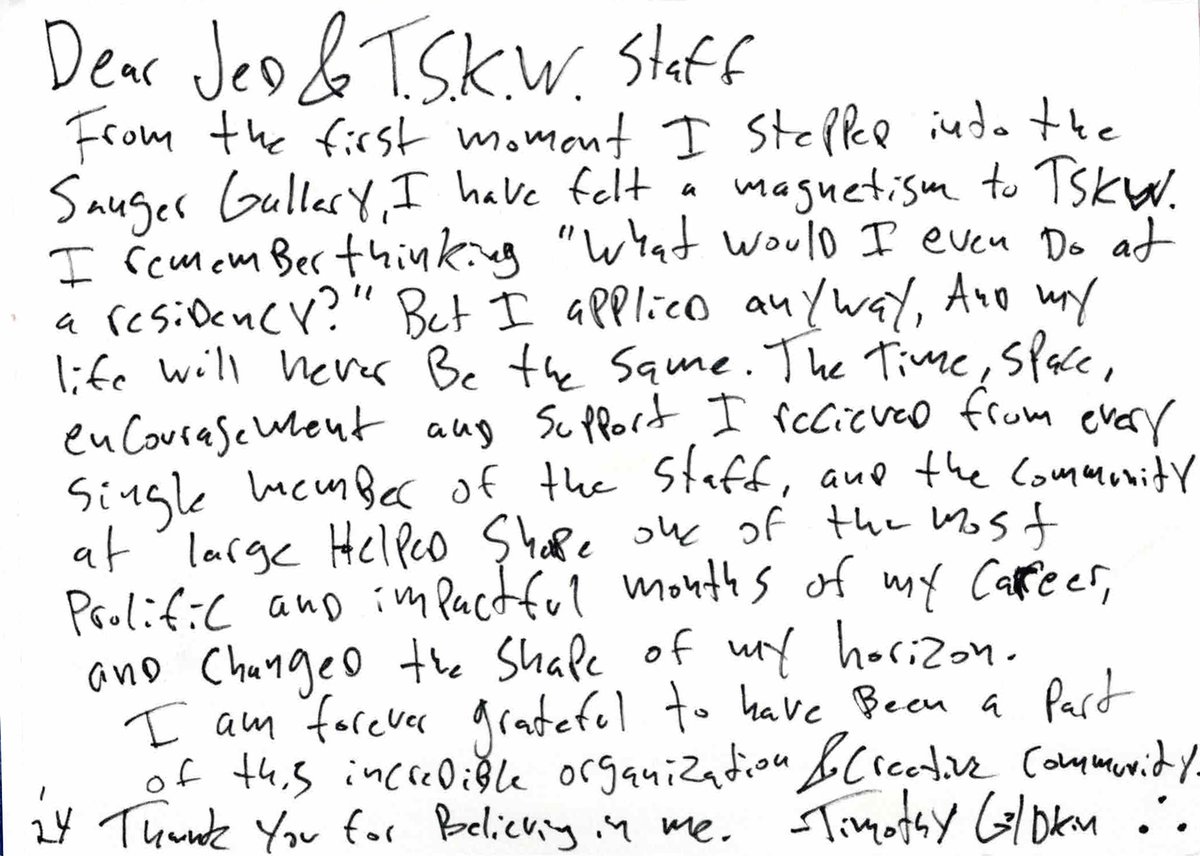 Dear Jed & T.S.K.W. Staff
From the first moment I stepped into the
Sanger Gallery, I have felt a magnetism to TSKW.
I remember thinking "What would I even do at
a residency?" But I applied anyway, and my
life will never be the same. The time, space,
encouragement and support I recieved from every
single member of the staff, and the community
at large helped shape one of the most
prolific and impactful months of my career,
and changed the shape of my horizon.
I am forever grateful to have been a part
of this incredible organization & creative community.
'24 Thank you for believing in me. -Timothy Goldkin